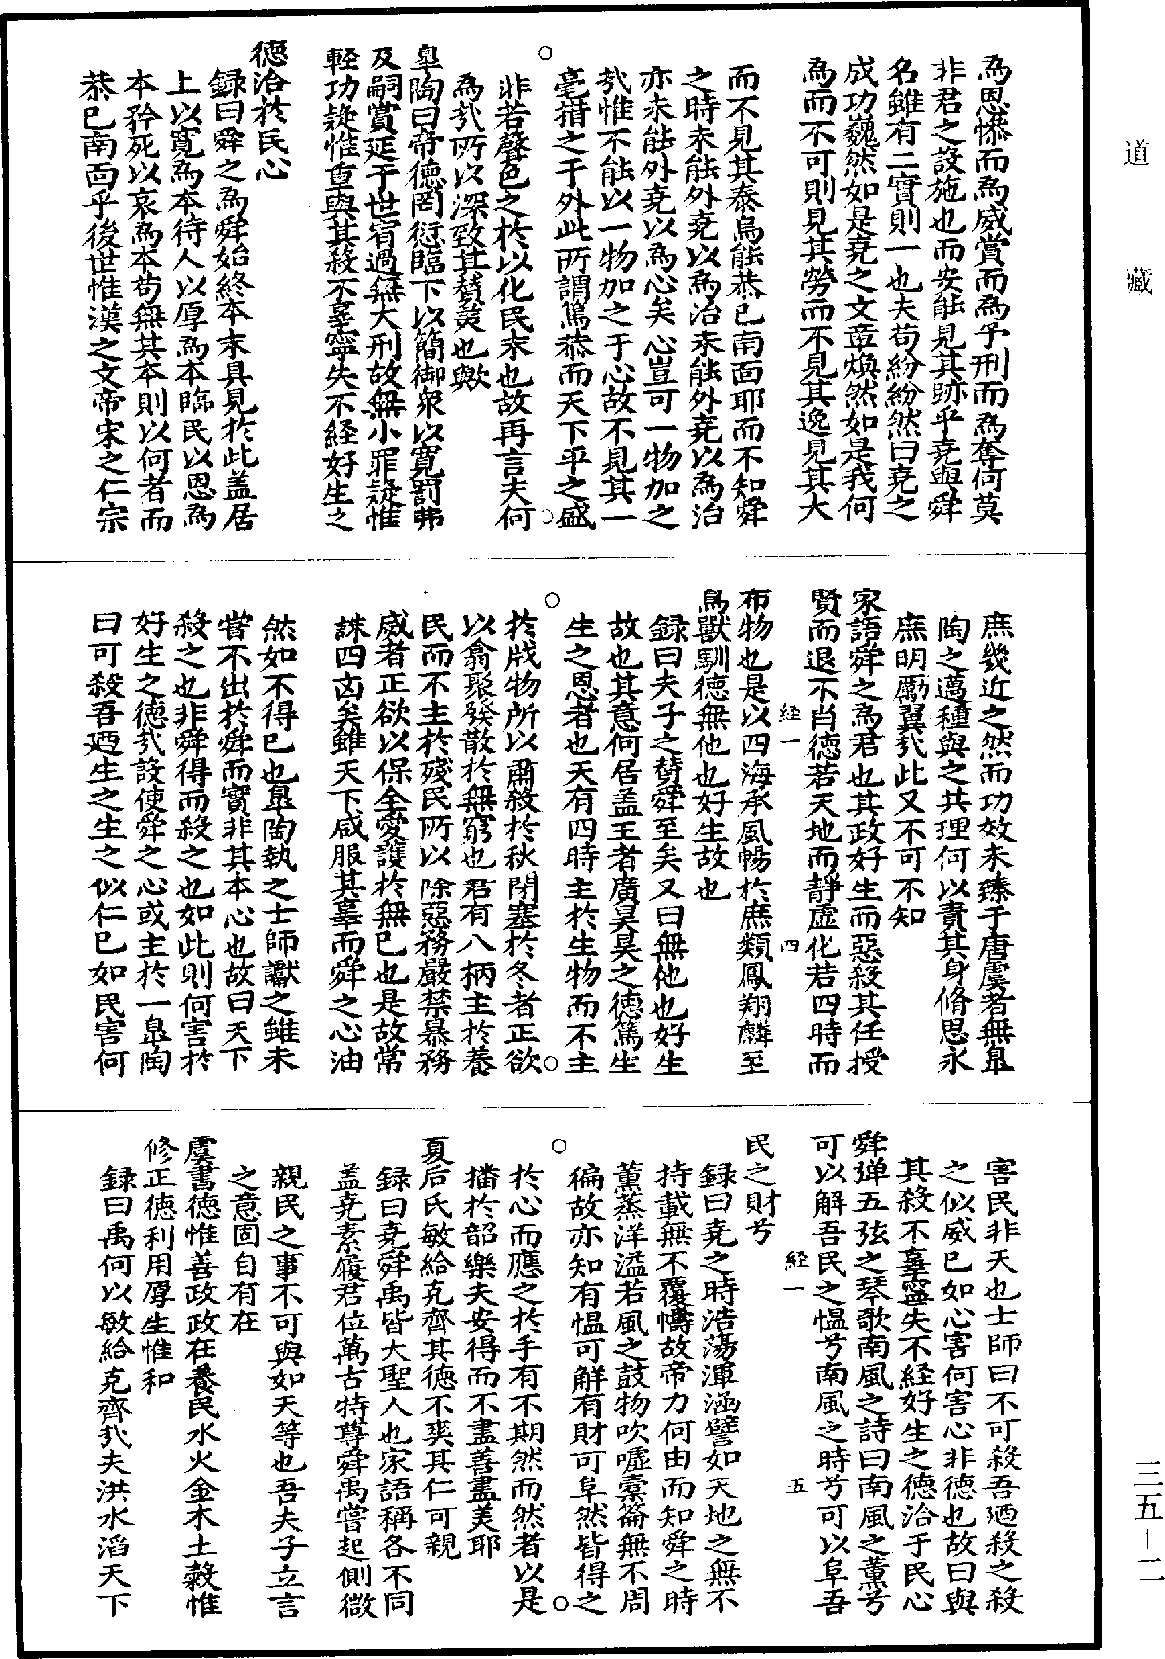 道藏
三五—二
為恩慘而為威賞而為予刑而為奪何莫
非君之設施也而安能見其跡乎堯與舜
名雖有二實則一也夫苟紛紛然曰堯之
成功巍然如是堯之文章煥然如是我何
為而不可則見其勞而不見其逸見其大
而不見其泰烏能恭已南面耶而不知舜
之時未能外堯以為治未能外堯以為治
亦未能外堯以為心矣心豈可一物加之
㦲惟不能以一物加之于心故不見其一
毫措之于外此所謂篤恭而天下平之盛
非若聲色之於以化民末也故再言夫何
為㦲所以深致其贊美也歟
臯陶曰帝德罔愆臨下以簡御衆以寬罰弗
及嗣賞延于世宥過無大刑故無小罪疑惟
輕功疑惟重與其殺不辜寧失不經好生之
德洽於民心
錄曰舜之為舜始終本末具見於此盖居
上以寬為本待人以厚為本臨民以恩為
本矜死以哀為本苟無其本則以何者而
恭已南面乎後世惟漢之文帝宋之仁宗
庶幾近之然而功效未臻于唐虞者無臯
陶之邁種與之共理何以責其身脩思永
庶明勵翼㦲此又不可不知
家語舜之為君也其政好生而惡殺其任授
賢而退不肖德若天地而靜虛化若四時而
経一 四
布物也是以四海承風暢於庶類鳳翔麟至
鳥獸馴德無他也好生故也
錄曰夫子之贊舜至矣又曰無他也好生
故也其意何居盖王者廣昊昊之德篤生
生之恩者也天有四時主於生物而不主
於戕物所以肅殺於秋閉塞於冬者正欲
以翕聚發散於無窮也君有八柄主於養
民而不主於殘民所以除惡務嚴禁暴務
威者正欲以保全愛護於無已也是故常
誅四凶矣雖天下咸服其辜而舜之心油
然如不得已也臯陶執之士師讞之雖未
嘗不出於舜而實非其本心也故曰天下
殺之也非舜得而殺之也如此則何害於
好生之德㦲設使舜之心或主於一臯陶
曰可殺吾廼生之生之似仁已如民害何
害民非天也士師曰不可殺吾廼殺之殺
之似威已如心害何害心非德也故曰與
其殺不辜寧失不經好生之德洽于民心
舜弹五弦之琴歌南風之詩曰南風之薰兮
可以解吾民之慍兮南風之時兮可以阜吾
経一 五
民之財兮
錄曰堯之時浩蕩渾涵譬如天地之無不
持載無不覆幬故帝力何由而知舜之時
薰蒸洋溢若風之鼓物吹噓橐籥無不周
徧故亦知有慍可解有財可阜然皆得之
於心而應之於手有不期然而然者以是
播於韶樂夫安得而不盡善盡美耶
夏后氏敏給克齊其德不爽其仁可親
錄曰堯舜禹皆大聖人也家語稱各不同
盖堯素履君位萬古特尊舜禹嘗起側微
親民之事不可與如天等也吾夫子立言
之意固自有在
虞書德惟善政政在養民水火金木土穀惟
修正德利用厚生惟和
錄曰禹何以敏給克齊㦲夫洪水滔天下